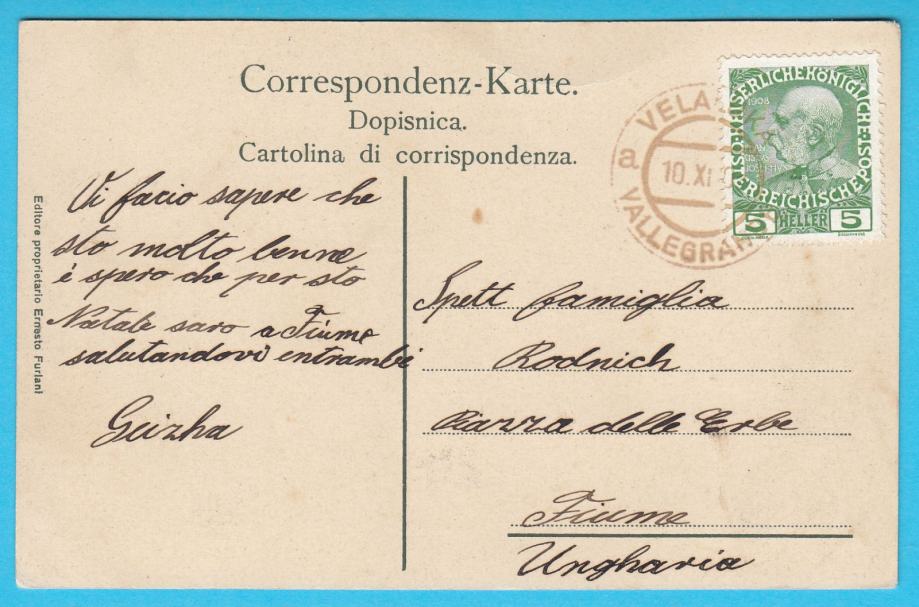 Correspondenz-Karte.
Dopisnica.
Cartolina di corrispondenza.
Vi facio sapere che
sto molto benne
è spero che per sto
Natale saro a Fiume
salutandovi entrambi
Geizha
Editore proprietario Ernesto Furlani
VELA
a
10.XI
VALLEGRAN
1908
KAISERLICHE KÖNIGLICHE
ÖSTERREICHISCHE POST
5 HELLER 5
Spett famiglia
Rodnich
Piazza delle Erbe
Fiume
Ungharia